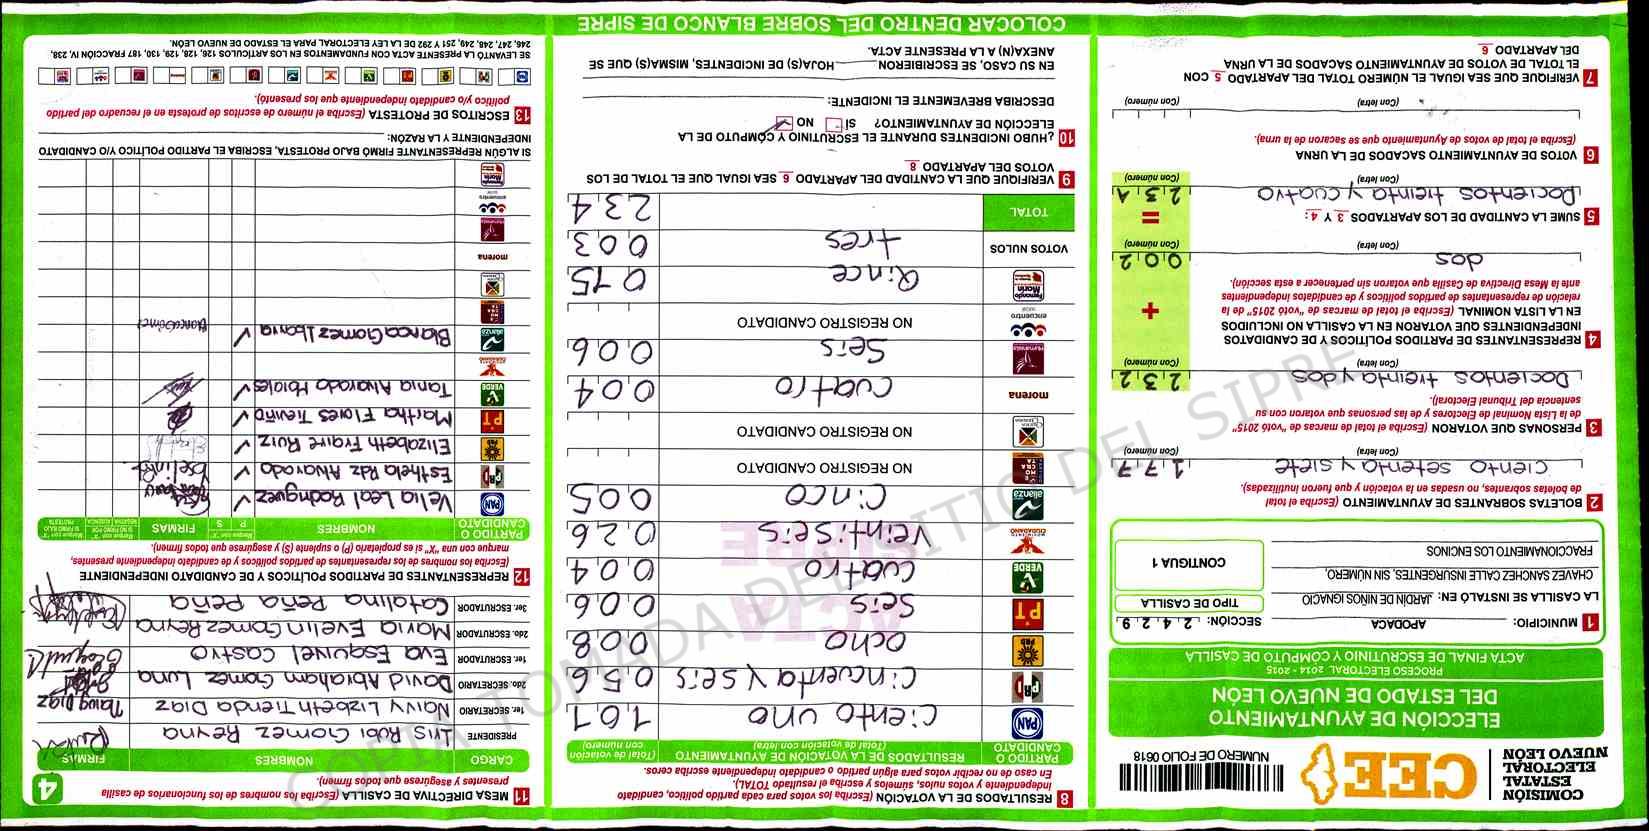 COMISIÓN
ESTATAL
ELECTORAL
NUEVO LEÓN
CEE
NÚMERO DE FOLIO 0618
ELECCIÓN DE AYUNTAMIENTO
DEL ESTADO DE NUEVO LEÓN
PROCESO ELECTORAL 2014 - 2015
ACTA FINAL DE ESCRUTINIO Y CÓMPUTO DE CASILLA
1 MUNICIPIO: APODACA SECCIÓN: 2 4 2 9
LA CASILLA SE INSTALÓ EN: JARDÍN DE NIÑOS IGNACIO
CHAVEZ SANCHEZ CALLE INSURGENTES, SIN NÚMERO,
FRACCIONAMIENTO LOS ENCINOS
TIPO DE CASILLA
CONTIGUA 1
2 BOLETAS SOBRANTES DE AYUNTAMIENTO (Escriba el total
de boletas sobrantes, no usadas en la votación y que fueron inutilizadas).
ciento setenta y siete 1 7 7
(Con letra) (Con número)
3 PERSONAS QUE VOTARON (Escriba el total de marcas de "votó 2015"
de la Lista Nominal de Electores y de las personas que votaron con su
sentencia del Tribunal Electoral).
Docientos treinta y dos 2 3 2
(Con letra) (Con número)
4 REPRESENTANTES DE PARTIDOS POLÍTICOS Y DE CANDIDATOS
INDEPENDIENTES QUE VOTARON EN LA CASILLA NO INCLUIDOS
EN LA LISTA NOMINAL (Escriba el total de marcas de "votó 2015" de la
relación de representantes de partidos políticos y de candidatos independientes
ante la Mesa Directiva de Casilla que votaron sin pertenecer a esta sección).
+
dos 0 0 2
(Con letra) (Con número)
5 SUME LA CANTIDAD DE LOS APARTADOS 3 Y 4:
=
Docientos treinta y cuatro 2 3 4
(Con letra) (Con número)
6 VOTOS DE AYUNTAMIENTO SACADOS DE LA URNA
(Escriba el total de votos de Ayuntamiento que se sacaron de la urna).
(Con letra) (Con número)
7 VERIFIQUE QUE SEA IGUAL EL NÚMERO TOTAL DEL APARTADO 5 CON
EL TOTAL DE VOTOS DE AYUNTAMIENTO SACADOS DE LA URNA
DEL APARTADO 6
8 RESULTADOS DE LA VOTACIÓN (Escriba los votos para cada partido político, candidato
independiente y votos nulos, súmelos y escriba el resultado TOTAL).
En caso de no recibir votos para algún partido o candidato independiente escriba ceros.
PARTIDO O CANDIDATO RESULTADOS DE LA VOTACIÓN DE AYUNTAMIENTO (Total de votación con letra) (Total de votación con número)
PAN ciento uno 1 0 1
PRI cincuenta y seis 0 5 6
PRD ocho 0 0 8
PT seis 0 0 6
VERDE cuatro 0 0 4
MOVIMIENTO CIUDADANO veintiseis 0 2 6
alianza cinco 0 0 5
NO REGISTRO CANDIDATO
NO REGISTRO CANDIDATO
morena cuatro 0 0 4
Humanista seis 0 0 6
encuentro social NO REGISTRO CANDIDATO
Fernando Marín Qince 0 1 5
VOTOS NULOS tres 0 0 3
TOTAL 2 3 4
9 VERIFIQUE QUE LA CANTIDAD DEL APARTADO 6 SEA IGUAL QUE EL TOTAL DE LOS
VOTOS DEL APARTADO 8
10 ¿HUBO INCIDENTES DURANTE EL ESCRUTINIO Y CÓMPUTO DE LA
ELECCIÓN DE AYUNTAMIENTO? SÍ NO
DESCRIBA BREVEMENTE EL INCIDENTE:
EN SU CASO, SE ESCRIBIERON HOJA(S) DE INCIDENTES, MISMA(S) QUE SE
ANEXA(N) A LA PRESENTE ACTA.
11 MESA DIRECTIVA DE CASILLA (Escriba los nombres de los funcionarios de casilla
presentes y asegúrese que todos firmen).
4
CARGO NOMBRES FIRMAS
PRESIDENTE Iris Robi Gomez Reyna
1er. SECRETARIO Naivy Lizbeth Tienda Diaz Naivy Diaz
2do. SECRETARIO David Abraham Gomez Luna
1er. ESCRUTADOR Eva Esquivel Castro
2do. ESCRUTADOR Maria Evelin Gomez Reyna
3er. ESCRUTADOR Catalina Peña Peña
12 REPRESENTANTES DE PARTIDOS POLÍTICOS Y DE CANDIDATO INDEPENDIENTE
(Escriba los nombres de los representantes de partidos políticos y de candidato independiente presentes,
marque con una "X" si es propietario (P) o suplente (S) y asegúrese que todos firmen).
PARTIDO O CANDIDATO NOMBRES Marque con "X" P S FIRMAS Marque con "X" SI NO FIRMÓ POR NEGATIVA AUSENCIA Marque con "X" SI FIRMÓ BAJO PROTESTA
PAN Velia Leal Rodriguez ✓
PRI Esthela Rdz Alvarado ✓
PRD Elizabeth Fraire Ruiz ✓
PT Martha Flores Treviño ✓
VERDE Tania Alvarado Morales ✓
MOVIMIENTO CIUDADANO
alianza Blanca Gomez Ibarra ✓
morena
Humanista
encuentro social
Fernando Marín
SI ALGÚN REPRESENTANTE FIRMÓ BAJO PROTESTA, ESCRIBA EL PARTIDO POLÍTICO Y/O CANDIDATO
INDEPENDIENTE Y LA RAZÓN:
13 ESCRITOS DE PROTESTA (Escriba el número de escritos de protesta en el recuadro del partido
político y/o candidato independiente que los presentó).
SE LEVANTÓ LA PRESENTE ACTA CON FUNDAMENTOS EN LOS ARTÍCULOS 126, 128, 129, 130, 187 FRACCIÓN IV, 238,
246, 247, 248, 249, 251 Y 292 DE LA LEY ELECTORAL PARA EL ESTADO DE NUEVO LEÓN.
COLOCAR DENTRO DEL SOBRE BLANCO DE SIPRE
ACTA
SIPRE
COPIA TOMADA DEL SITIO DEL SIPRE